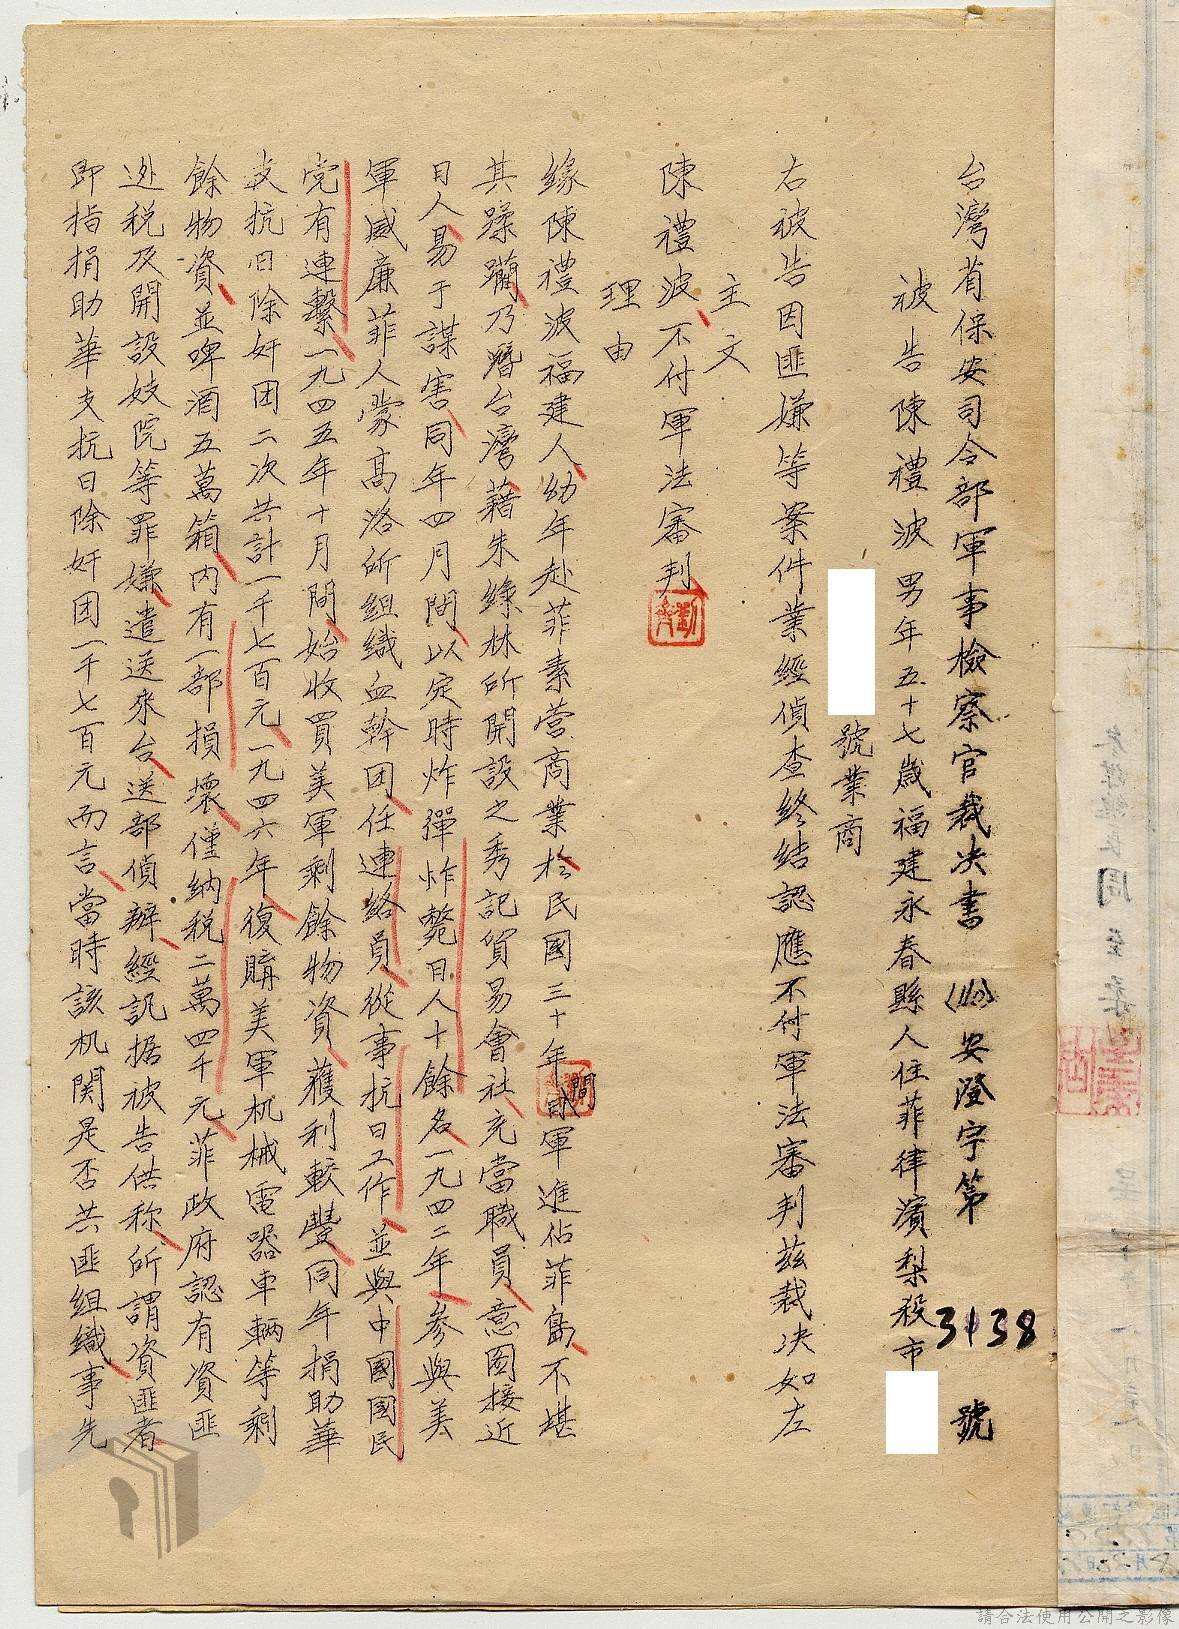 台灣省保安司令部軍事檢察官裁决書 (40)安澄字第3438號
被告陳禮波男年五十七歲福建永春縣人住菲律濱梨剎市
號業商
右被告因匪嫌等案件業經偵查終結認應不付軍法審判茲裁决如左
主文
陳禮波不付軍法審判
理由
緣陳禮波福建人幼年赴菲素营商業於民國三十年間敵軍進佔菲島不堪
其蹂躪乃藉台灣籍朱綠林所開設之秀記貿易會社充當職員意圖接近
日人易于謀害同年四月間以定時炸彈炸斃日人十餘名一九四二年參與美
軍威廉菲人蒙髙洛所組織血幹团任連絡員從事抗日工作並與中國國民
党有連繫一九四五年十月間始收買美軍剩餘物資獲利較豐同年捐助華
支抗日除奸团二次共計一千七百元一九四六年復購美軍机械電器車輛等剩
餘物資並啤酒五萬箱内有一部損壞僅納税二萬四千元菲政府認有資匪
逃税及開設妓院等罪嫌遣送來台送部偵辦經訊据被告供称所謂資匪者
即指捐助華支抗日除奸团一千七百元而言當時該机関是否共匪組織事先
請合法使用公開之影像